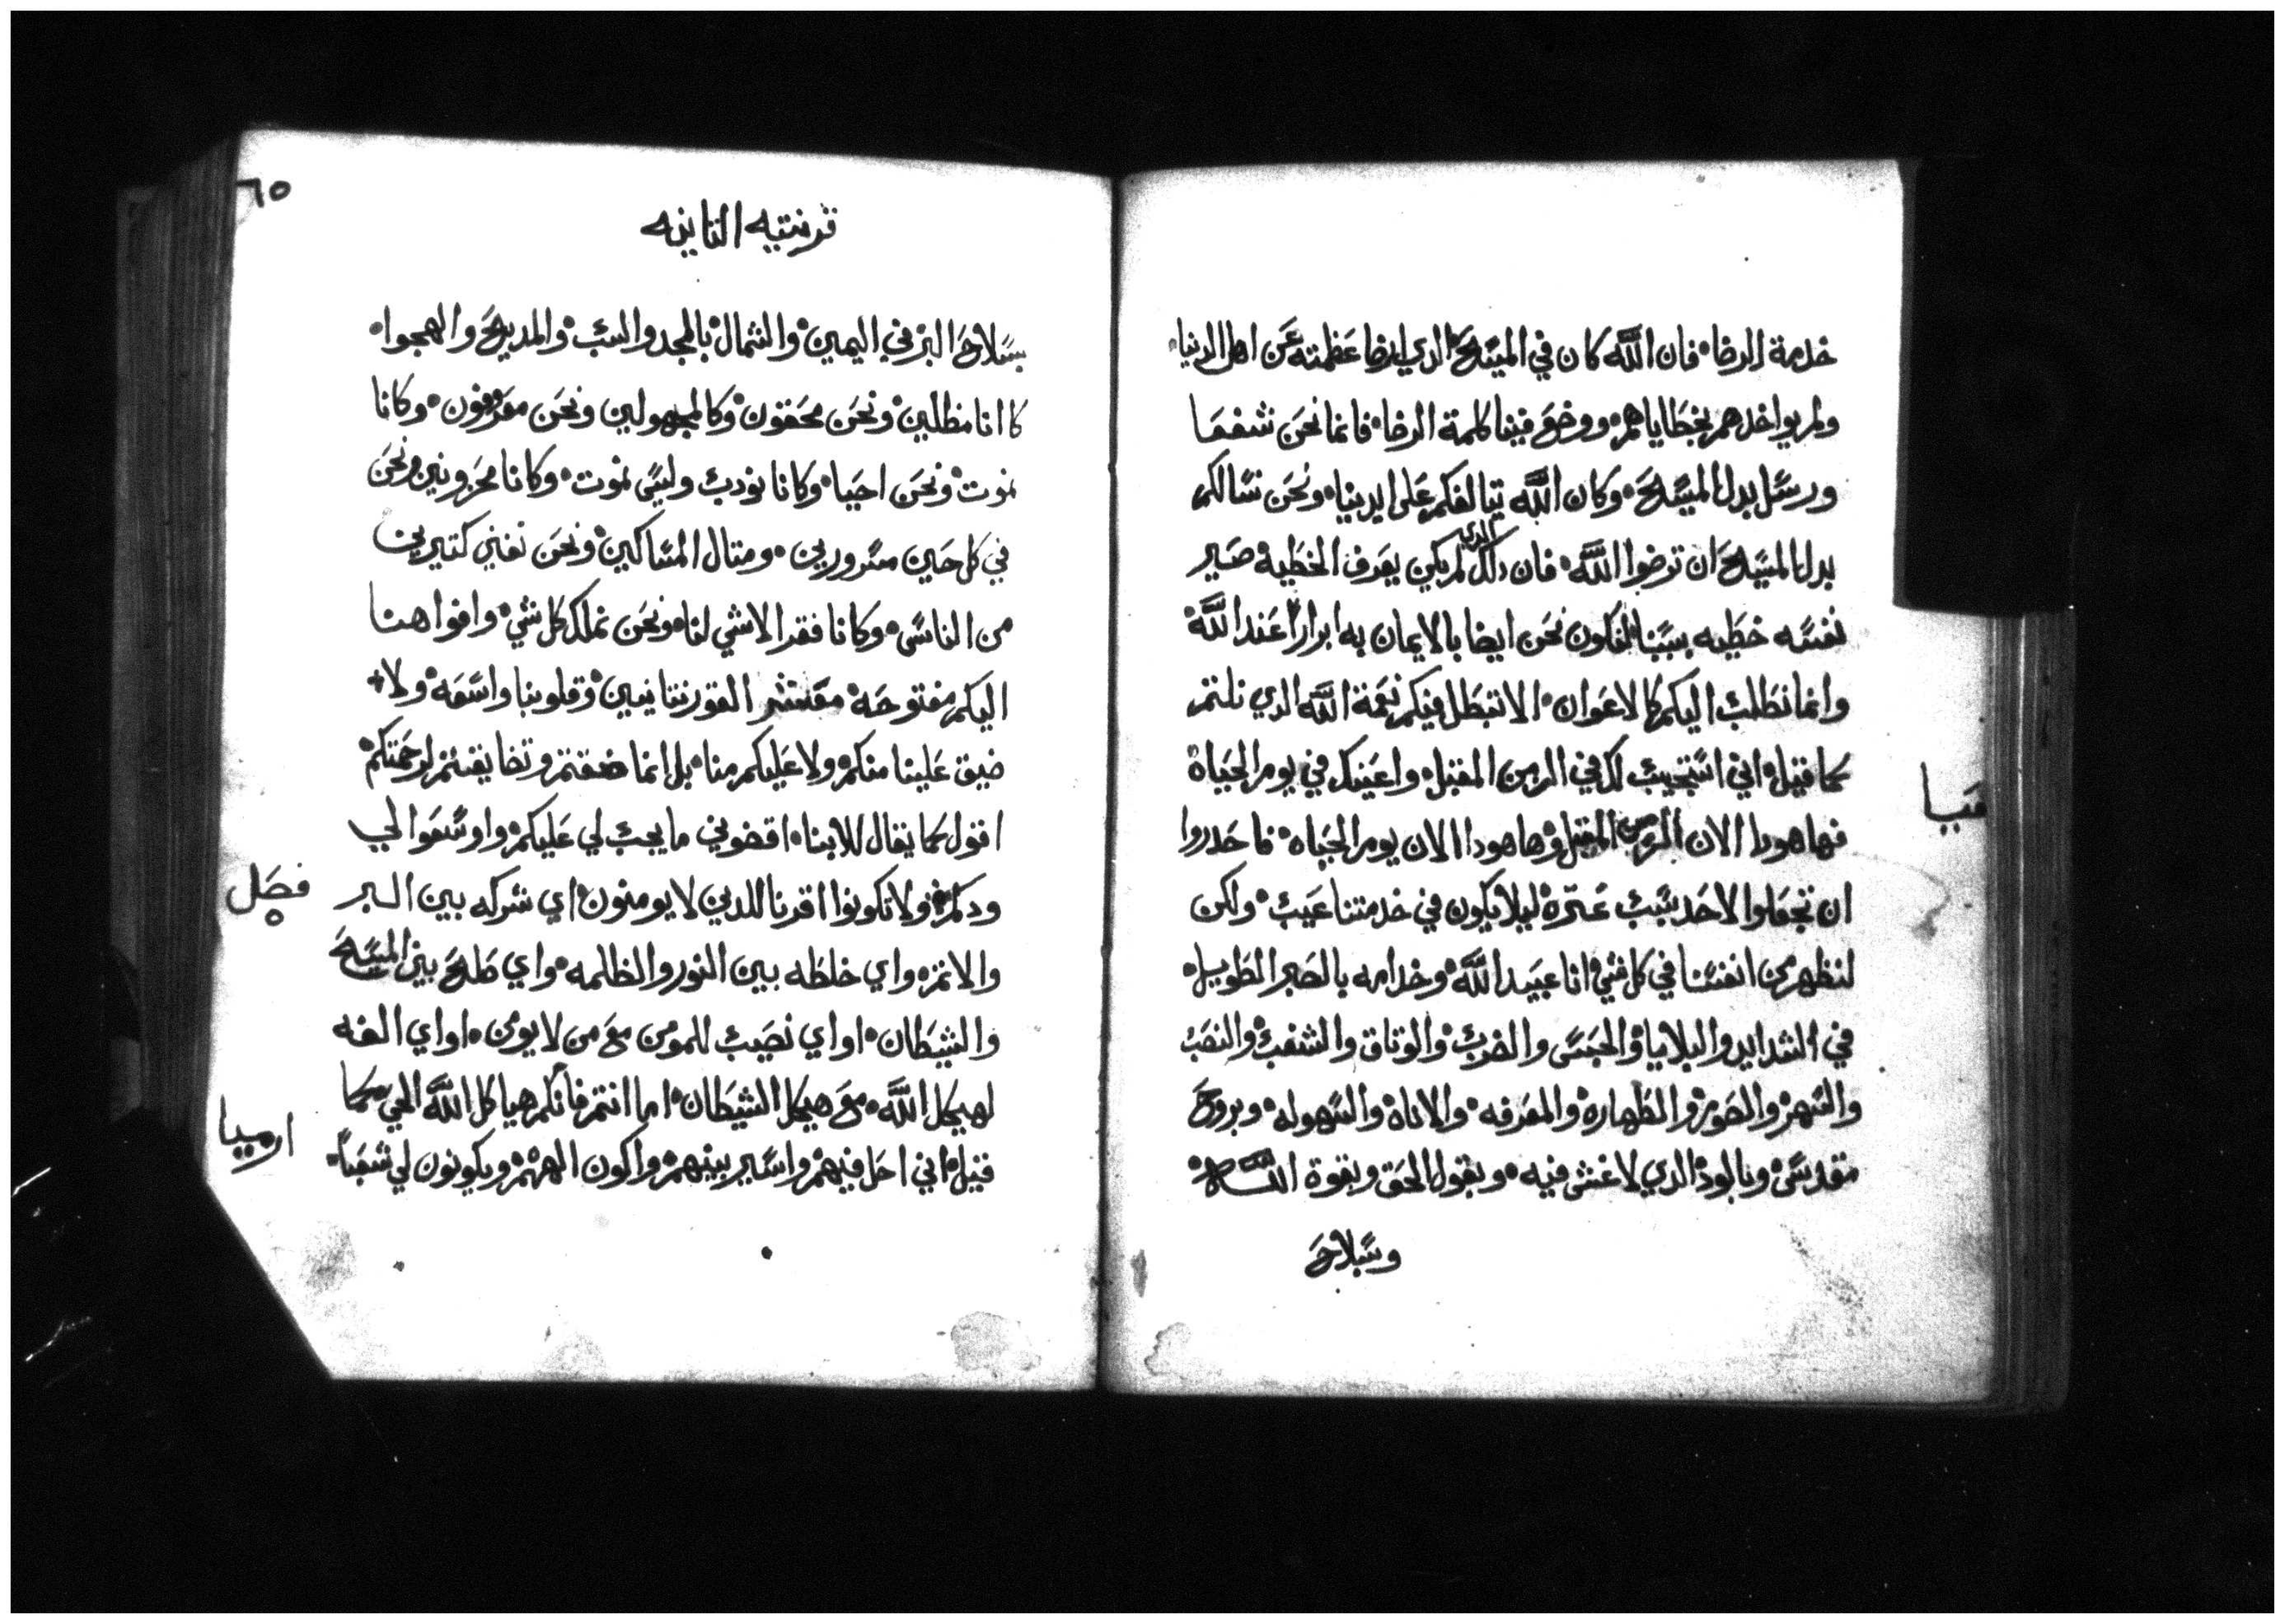 خدمة الرضا فان الله كان في المسيح الدي ارضا عظمته عن اهل الدنيا
ولم يواخدهم بخطاياهم ووضع فينا كلمة الرضا فانما نحن شفعا
ورسل بدل المسيح وكان الله يتالفكم على ايدينا ونحن نسالكم
بدل المسيح ان ترضوا الله فان دلك الدي لم يكن يعرف الخطية صير
نفسه خطيه بسببنا لنكون نحن ايضا بالايمان به ابراراً عند الله
وانما نطلب اليكم كالاعوان الا تبطل فيكم نعمة الله الدي نلتم
كما قيل اني استجيب لك في الزمن المقبل واعينك في يوم الحياة
فها هودا الان الزمن المقبل وها هودا الان يوم الحياه فاحدروا
ان تجعلوا لاحد بسبب عترة ليلا يكون في خدمتنا عيب ولكن
لنظهر من انفسنا في كل شي انا عبيد الله وخدامه بالصبر الطويل
في الشدايد والبلايا والحبس والضرب والوتاق والشغب والنصب
والسهر والصوم والطهاره والمعرفه والاناة والسهوله وبروح
مقدس وبالود الدي لا غش فيه وبقول الحق وبقوة الله
وسلاح
٦٥
قرنتيه التانيه
بسلاح البر في اليمين والشمال بالمجد والسب والمديح والهجوا
كاانا مظلين ونحن محققون وكالمجهولين ونحن معروفون وكانا
نموت ونحن احيا وكانا نودب وليس نموت وكانا محزونين ونحن
في كل حين مسرورين ومتال المساكين ونحن نغني كتيرين
من الناس وكانا فقرا لا شي لنا ونحن نملك كل شي وافواهنا
اليكم مفتوحة معشر القورنتانيين وقلوبنا واسعه ولا
ضيق علينا منكم ولا عليكم منا بل انما ضقتم وتضايقتم لرحمتكم
اقول كما يقال للابنا اقضوني ما يجب لي عليكم واوسعوا لي
ودكم ولا تكونوا اقرنا للدين لا يومنون اي شركه بين البر
فصل
والاتم واي خلطه بين النور والظلمه واي صلح بين المسيح
والشيطان او اي نصيب للمومن مع من لا يومن او اي الفه
لهيكل الله مع هيكل الشيطان اما انتم فانكم هياكل الله الحي كما
ارميا
قيل اني احل فيهم واسير بينهم واكون الههم ويكونون لي شعباً